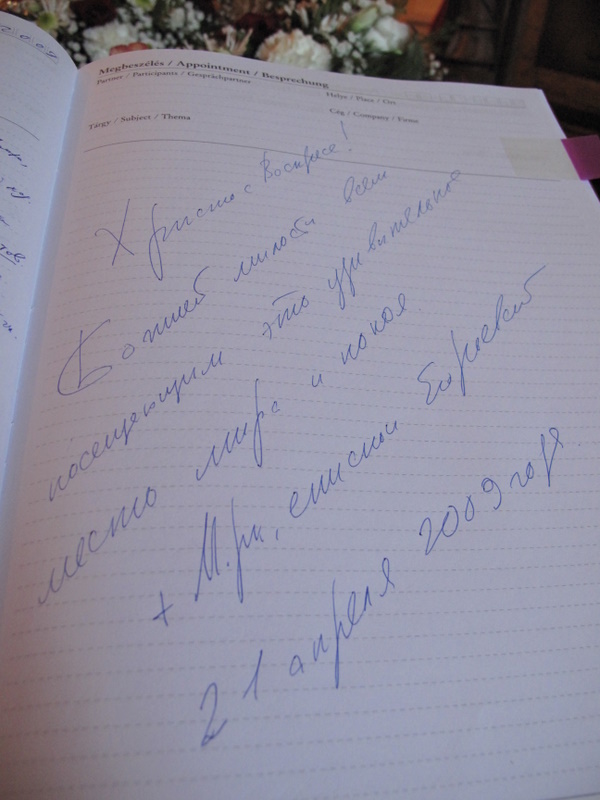 2009
Megbeszélés / Appointment / Besprechung
Partner / Participants / Gesprächpartner
Helye / Place / Ort
Cég / Company / Firma
Tárgy / Subject / Thema
Христос Воскресе!
Божией милости всем
посещающим это удивительное
место мира и покоя.
+ Марк, епископ Егорьевский
21 апреля 2009 года.